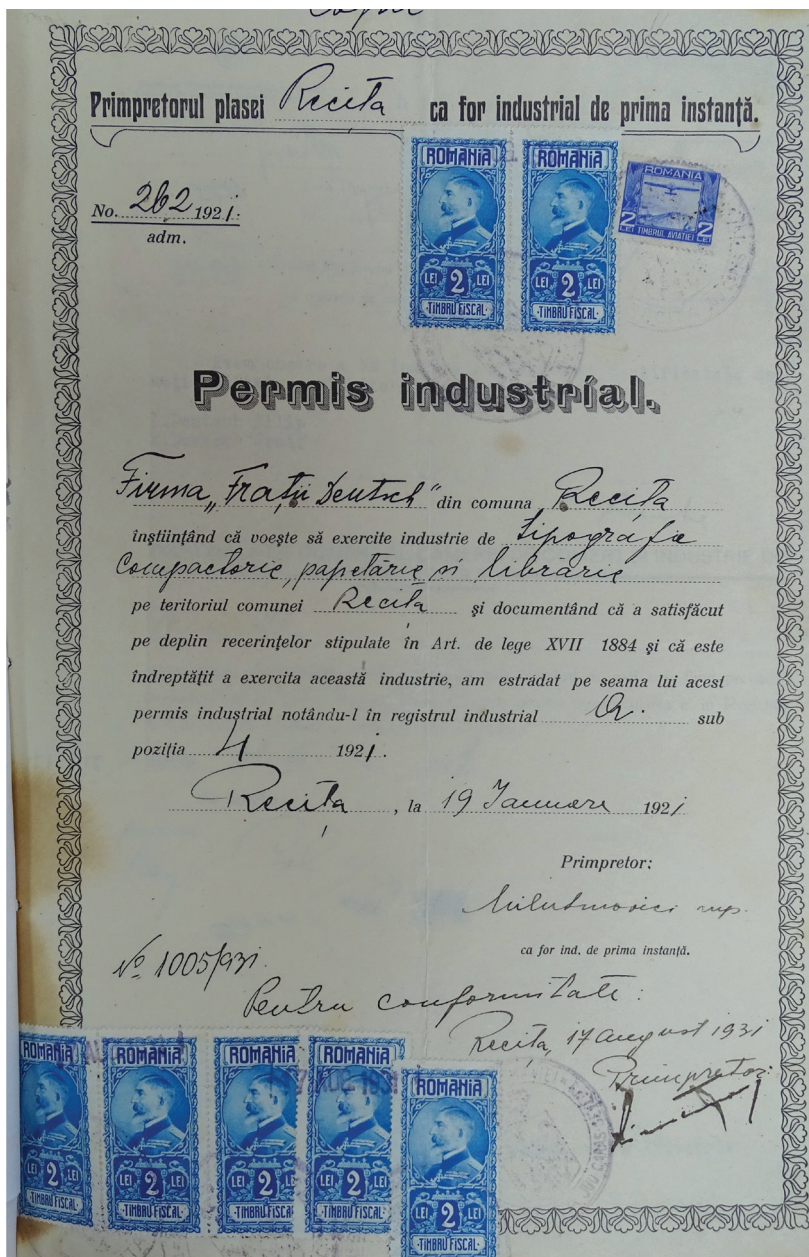 Primpretorul plasei Recița ca for industrial de prima instanță.
ROMANIA
LEI 2 LEI
TIMBRU FISCAL
ROMANIA
LEI 2 LEI
TIMBRU FISCAL
ROMANIA
2 2
LEI TIMBRUL AVIAȚIEI LEI
No. 262 1921.
adm.
Permis industríal.
Firma „Frații Deutsch" din comuna Recița
înștiințând că voește să exercite industrie de tipografie
compactorie, papetărie și librărie
pe teritoriul comunei Recița și documentând că a satisfăcut
pe deplin recerințelor stipulate în Art. de lege XVII 1884 și că este
îndreptățit a exercita această industrie, am estrădat pe seama lui acest
permis industrial notându-l în registrul industrial sub
poziția 4 1921.
Recița, la 19 Ianuare 1921
Primpretor:
ca for ind. de prima instanță.
No 1005/931.
Pentru conformitate:
Recița, 17 august 1931
Primpretor:
ROMANIA
LEI 2 LEI
TIMBRU FISCAL
ROMANIA
LEI 2 LEI
TIMBRU FISCAL
ROMANIA
LEI 2 LEI
TIMBRU FISCAL
ROMANIA
LEI 2 LEI
TIMBRU FISCAL
ROMANIA
LEI 2 LEI
TIMBRU FISCAL